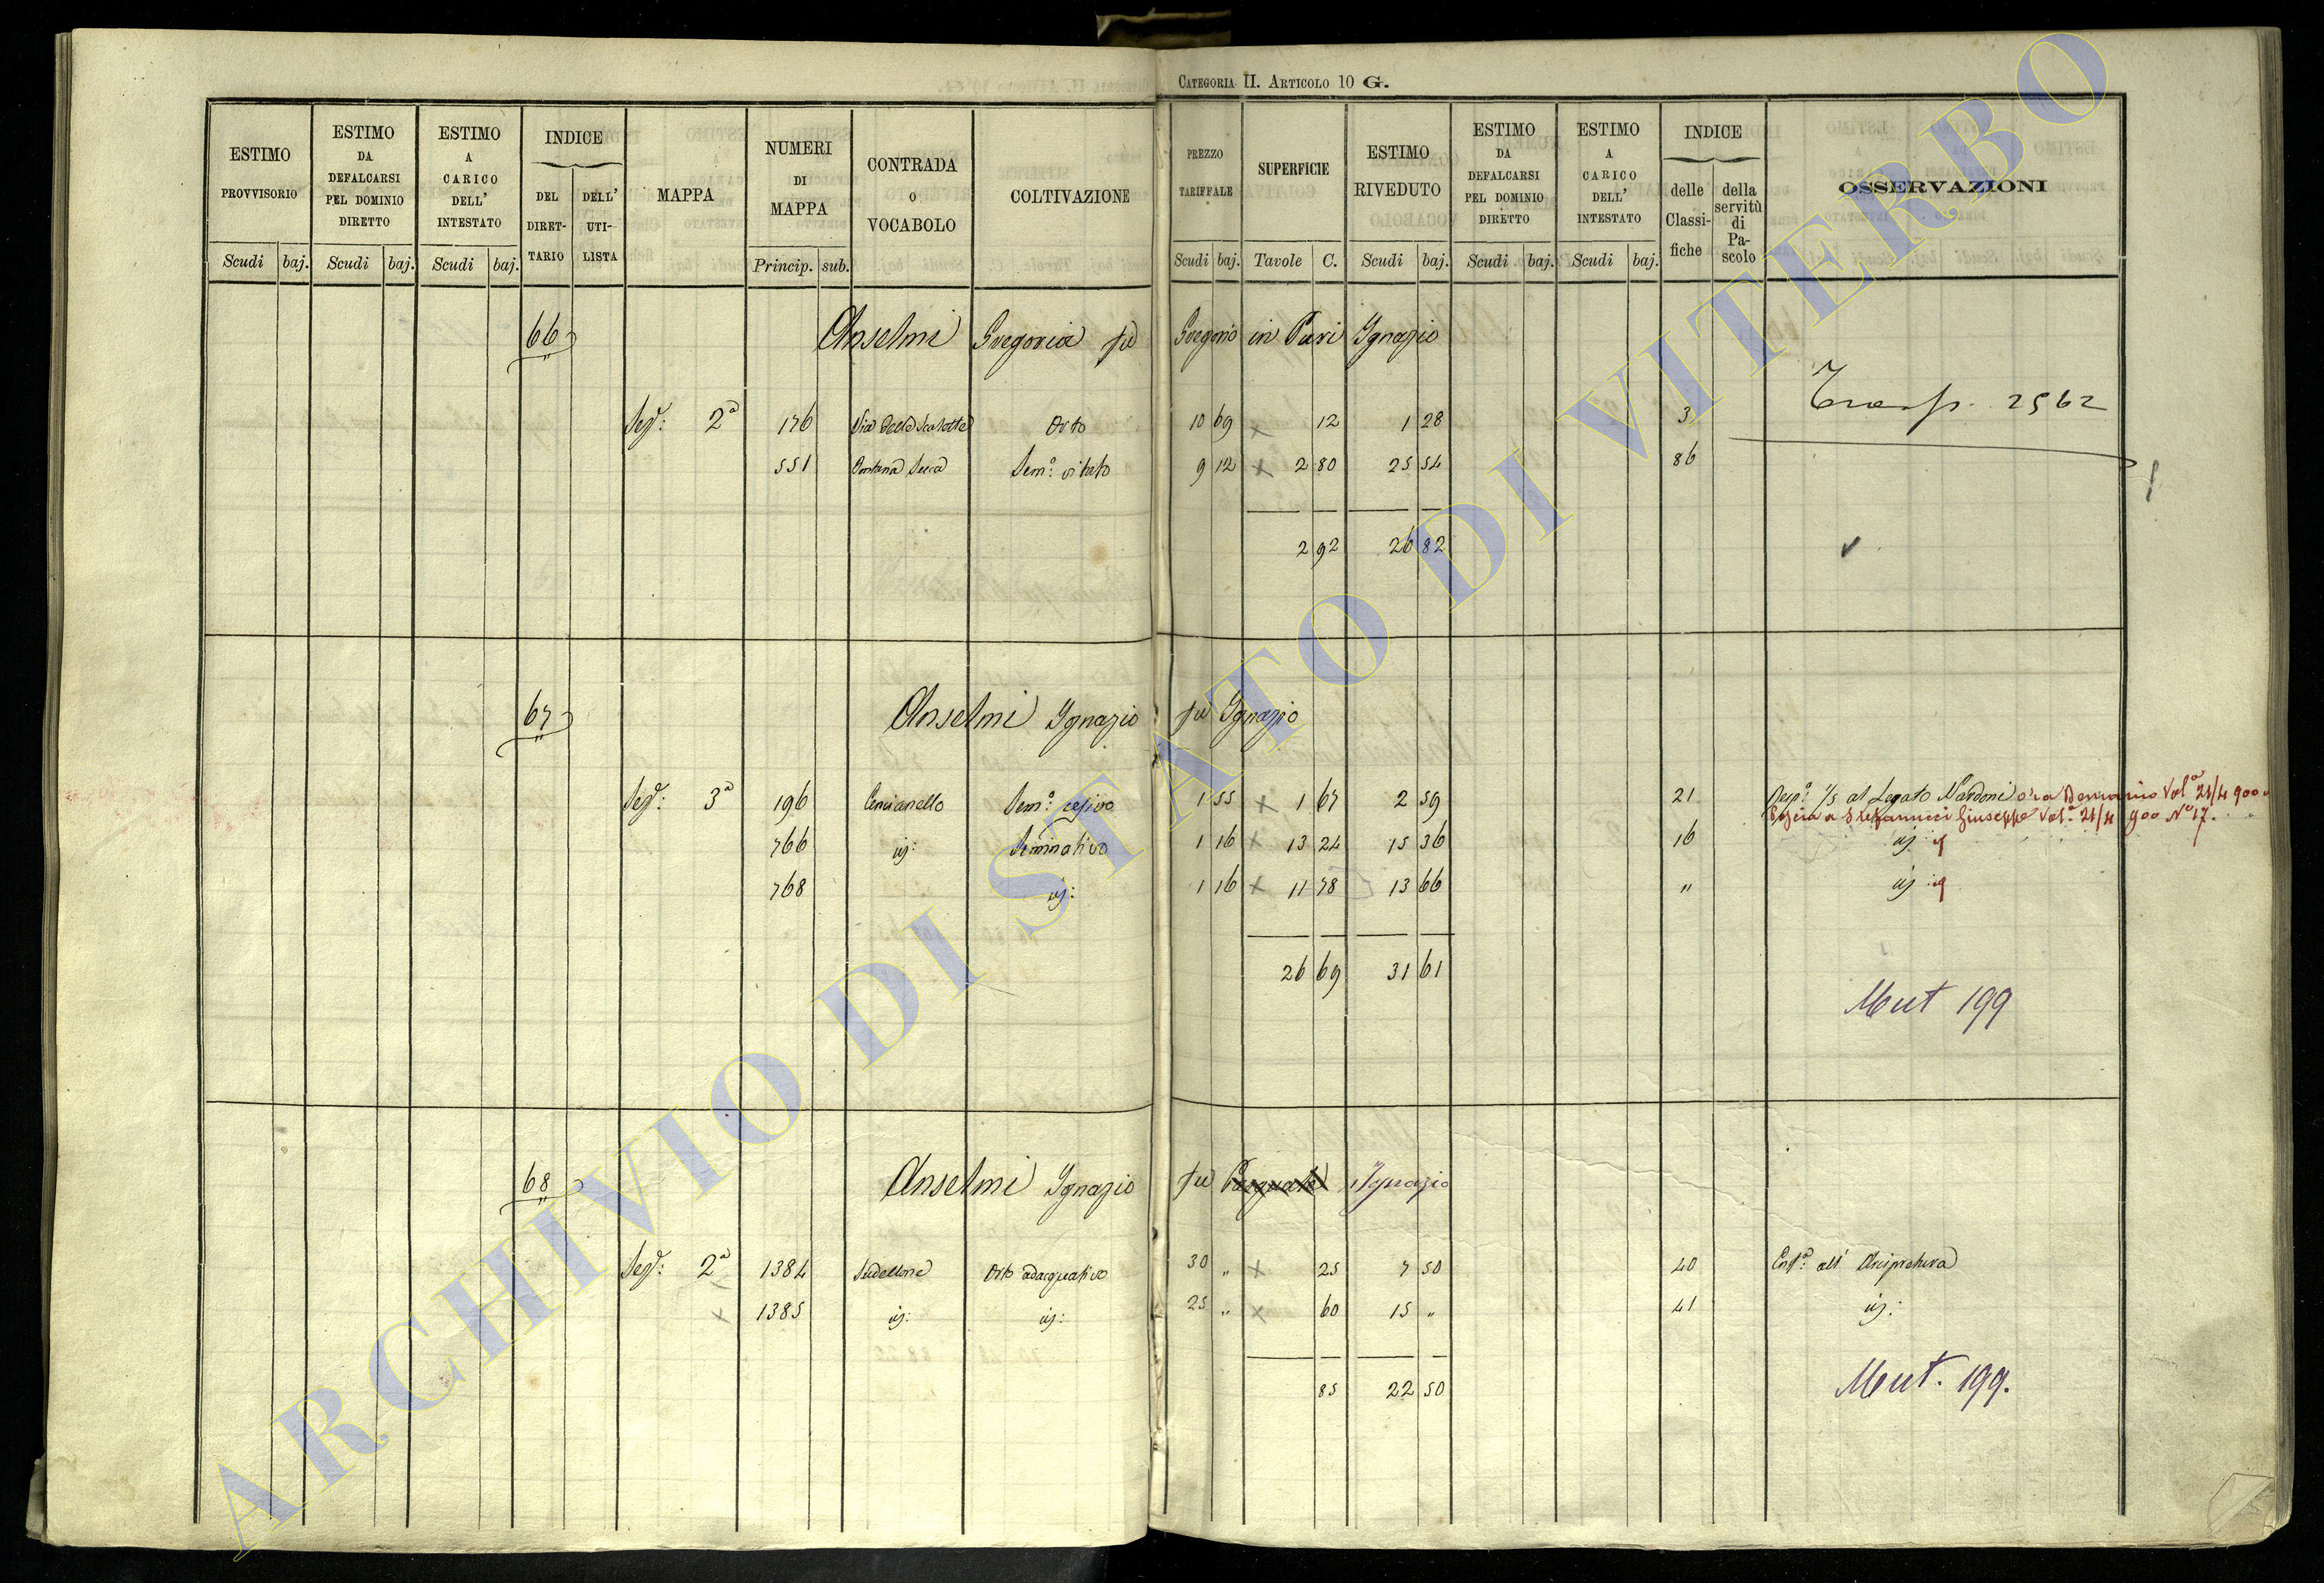 CATEGORIA II. ARTICOLO 10 G.
ESTIMO PROVVISORIO Scudi baj.
ESTIMO DA DEFALCARSI PEL DOMINIO DIRETTO Scudi baj.
ESTIMO A CARICO DELL' INTESTATO Scudi baj.
INDICE DEL DIRET-TARIO DELL' UTI-LISTA
MAPPA
NUMERI DI MAPPA Princip. sub.
CONTRADA O VOCABOLO
COLTIVAZIONE
PREZZO TARIFFALE Scudi baj.
SUPERFICIE Tavole C.
ESTIMO RIVEDUTO Scudi baj.
ESTIMO DA DEFALCARSI PEL DOMINIO DIRETTO Scudi baj.
ESTIMO A CARICO DELL' INTESTATO Scudi baj.
INDICE delle Classi-fiche della servitù di Pa-scolo
OSSERVAZIONI
66 Anselmi Gregoria fu Gregorio in Puri Ignazio
Segr: 2ª 176 Via delle Scalette Orto 10 69 × 12 1 28 3
Trasp. 2562
551 Fontana Secca Sem:º vitato 9 12 × 2 80 25 54 86
2 92 26 82
67 Anselmi Ignazio fu Ignazio
Segr: 3ª 196 Cencianello Sem:º cesivo 1 55 × 1 67 2 59 21 Risp:ª 1/5 al Legato Nardoni ora Demanio Vol.ª 24/4 900
Poscia a Stefanucci Giuseppe Vol.ª 24/4 900 Nº 17.
766 id: Seminativo 1 16 × 13 24 15 36 16 id:
768 id: 1 16 × 11 78 13 66 " id
26 69 31 61
Mut 199
68 Anselmi Ignazio fu Pasquale Ignazio
Segr: 2ª 1384 Orto adacquativo 30 " × 25 7 50 40 all' Arcipretura
× 1385 id: id: 25 " × 60 15 " 41 id:
85 22 50
Mut. 199.
ARCHIVIO DI STATO DI VITERBO